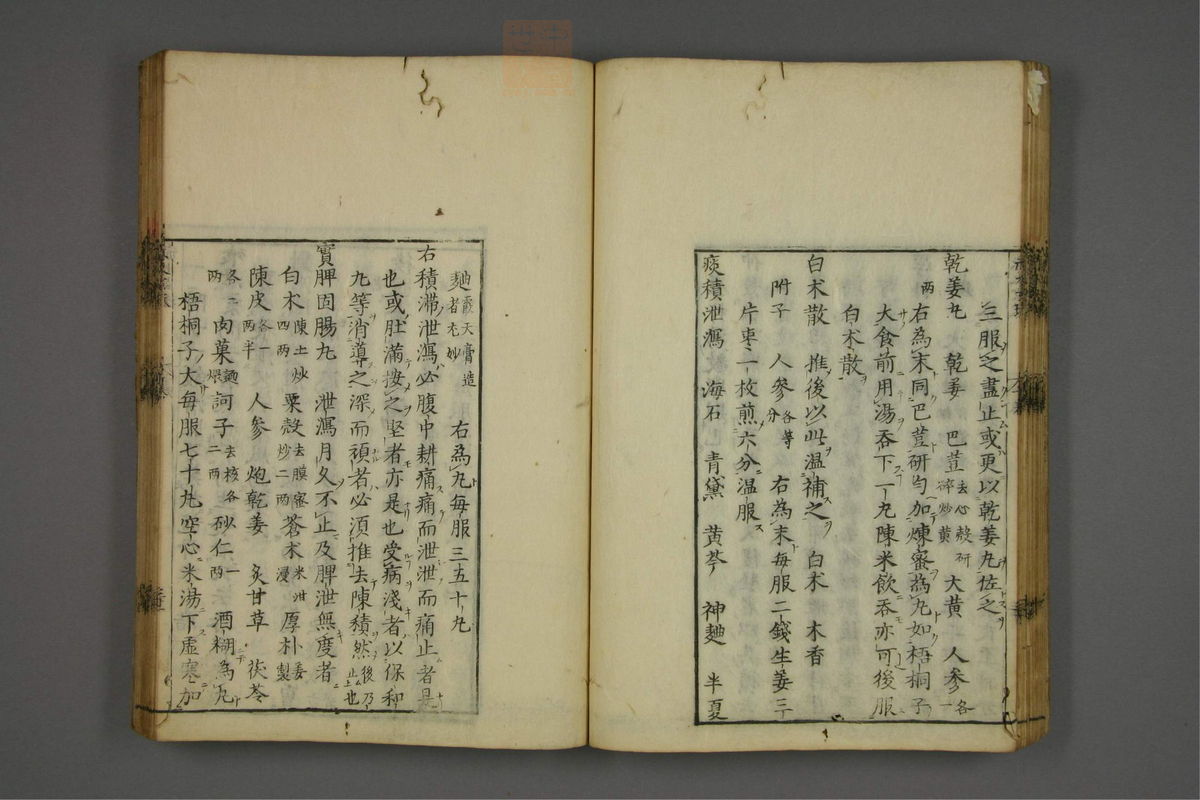 三服之盡止或更以乾姜丸佐之
乾姜丸 乾姜 巴荳去心殼研碎炒黄 大黄 人參各一兩
右為末同巴荳研勻加煉蜜為丸如梧桐子
大食前用湯吞下一丸陳米飲吞亦可後服
白术散
白术散 推後以此温補之 白术 木香
附子 人參各等分 右為末每服二錢生姜三
片枣二枚煎六分温服
痰積泄瀉 海石 青黛 黄芩 神麯 半夏
麯霞天膏造者尤妙 右為丸每服三五十丸
右積滞泄瀉必腹中耕痛痛而泄泄而痛止者是
也或肚滿按之堅者亦是也受病淺者以保和
丸等消導之深而頑者必須推去陳積然後乃止也
實脾固腸丸 泄瀉月久不止及脾泄無度者
白术陳土炒四兩 粟殼去膜蜜炒二兩 蒼术米泔浸 厚朴姜製
陳皮各一兩半 人參 炮乾姜 炙甘草 茯苓
各二兩 肉菓麵煨 訶子去核各二兩 砂仁一兩 酒糊為丸
梧桐子大每服七十丸空心米湯下虚寒加